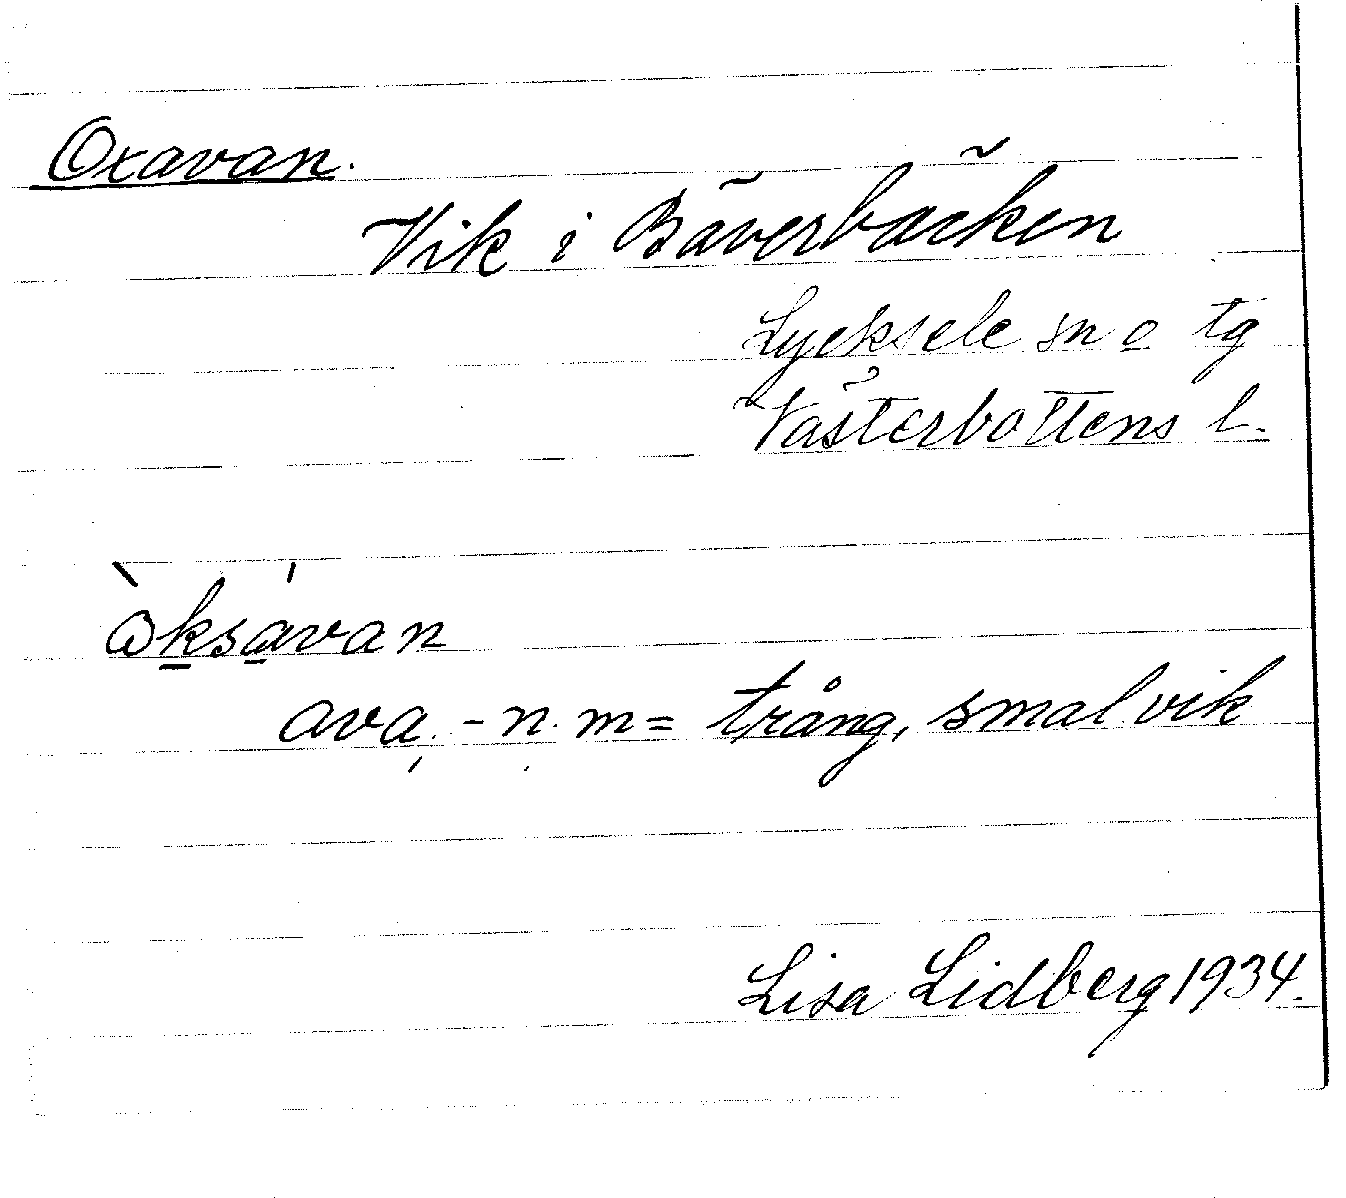 Oxavan.
Vik i Bäverbäcken
Lycksele sn o tg
Västerbottens l.
ὼksávan
ava, -n. m = trång, smal vik
Lisa Lidberg 1934.